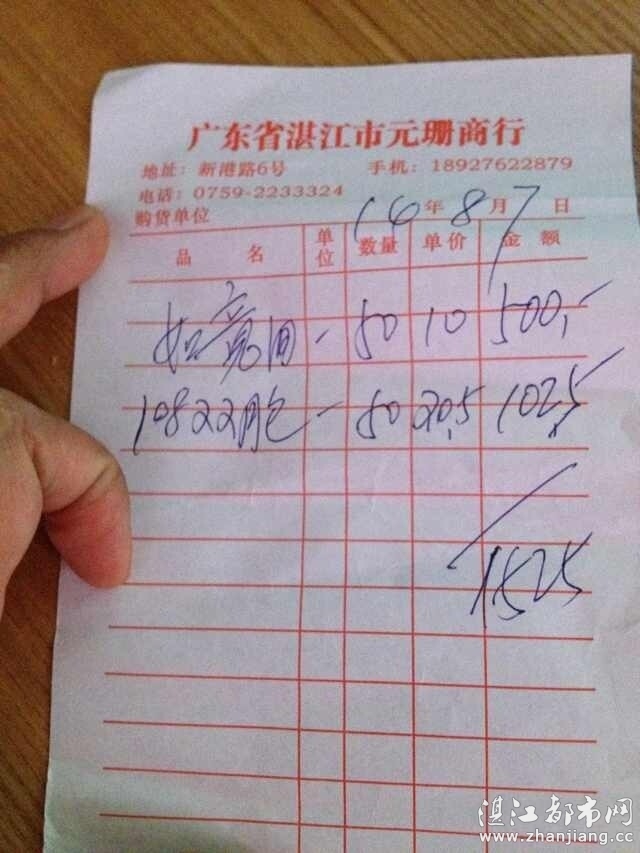 广东省湛江市元珊商行
地址：新港路6号 手机：18927622879
电话：0759-2233324
购货单位 14年8月7日
品名 单位 数量 单价 金额
如意 - 50 10 500,-
10822 - 50 20.5 1025
1525
湛江都市网
www.zhanjiang.cc